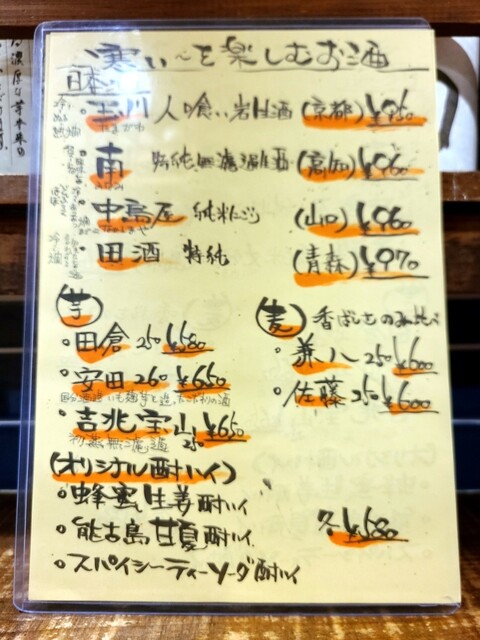 寒い〜を楽しむお酒
日本酒
玉川 人喰い岩生酒 (京都) ¥950
たまがわ
南 特純無濾過生酒 (高知) ¥960
みなみ
中島屋 純米にごり (山口) ¥960
なかしまや
田酒 特純 (青森) ¥970
芋
田倉 250 ¥680
安田 260 ¥650
吉兆宝山 250 ¥650
初蒸無濾過
麦 香ばしさのみ比べ
兼八 250 ¥600
佐藤 250 ¥600
(オリジナル酎ハイ)
蜂蜜生姜酎ハイ
能古島甘夏酎ハイ 各¥580
スパイシーティーソーダ酎ハイ